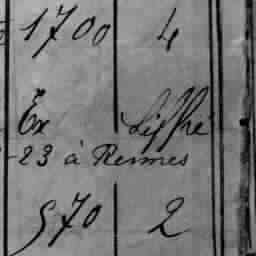 1700 4
Ex Liffré
-23 à Rennes
570 2